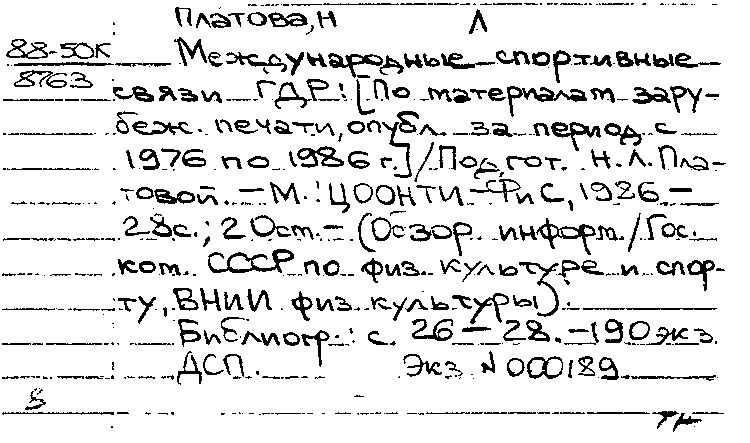 Платова, Н Л
88-50К Международные спортивные
8763 связи ГДР: [По материалам зару-
беж. печати, опубл. за период с
1976 по 1986 г.] / Подгот. Н.Л. Пла-
товой. - М.: ЦООНТИ-ФиС, 1986. -
28с.; 20см. - (Обзор. информ. / Гос.
ком. СССР по физ. культуре и спор-
ту, ВНИИ физ. культуры).
Библиогр.: с. 26-28. - 190 экз.
ДСП. Экз N 000189